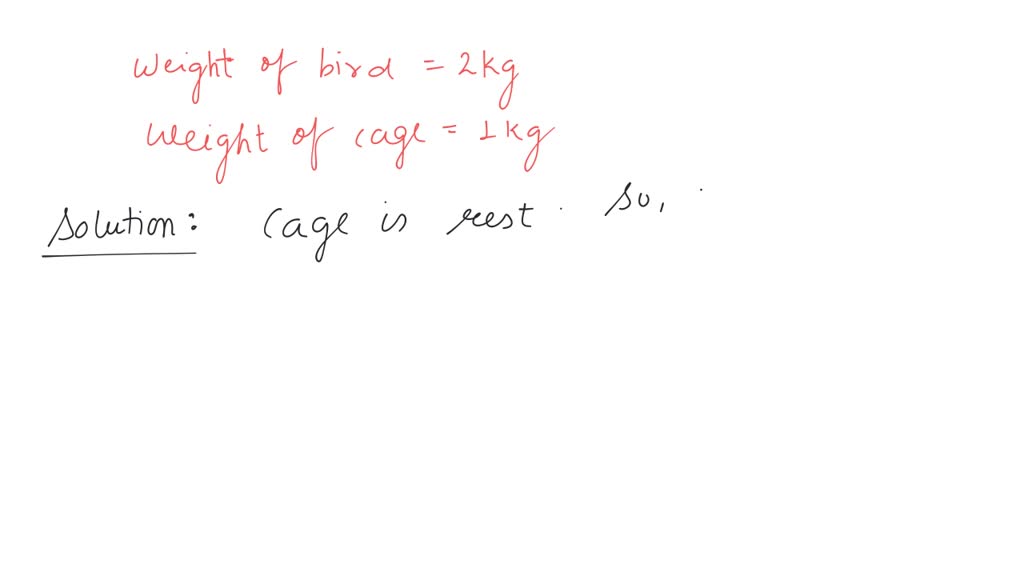 Weight of bird = 2kg
Weight of cage = 1kg
Solution: Cage is rest. so,